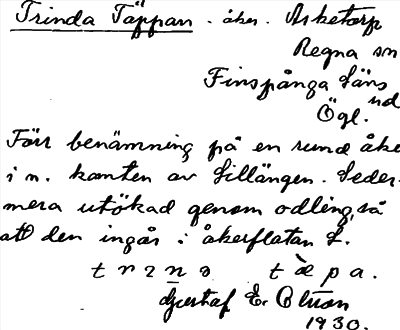 Trinda Täppan. åker. Asketorp
Regna sn
Finspånga läns
hd
Ögl.
Förr benämning på en rund åke
i n. kanten av Lillängen. Seder-
mera utökad genom odling, så
att den ingår i åkerflatan L.
trɪnə tæ̀pa.
Gustaf Er. Olsson
1930.